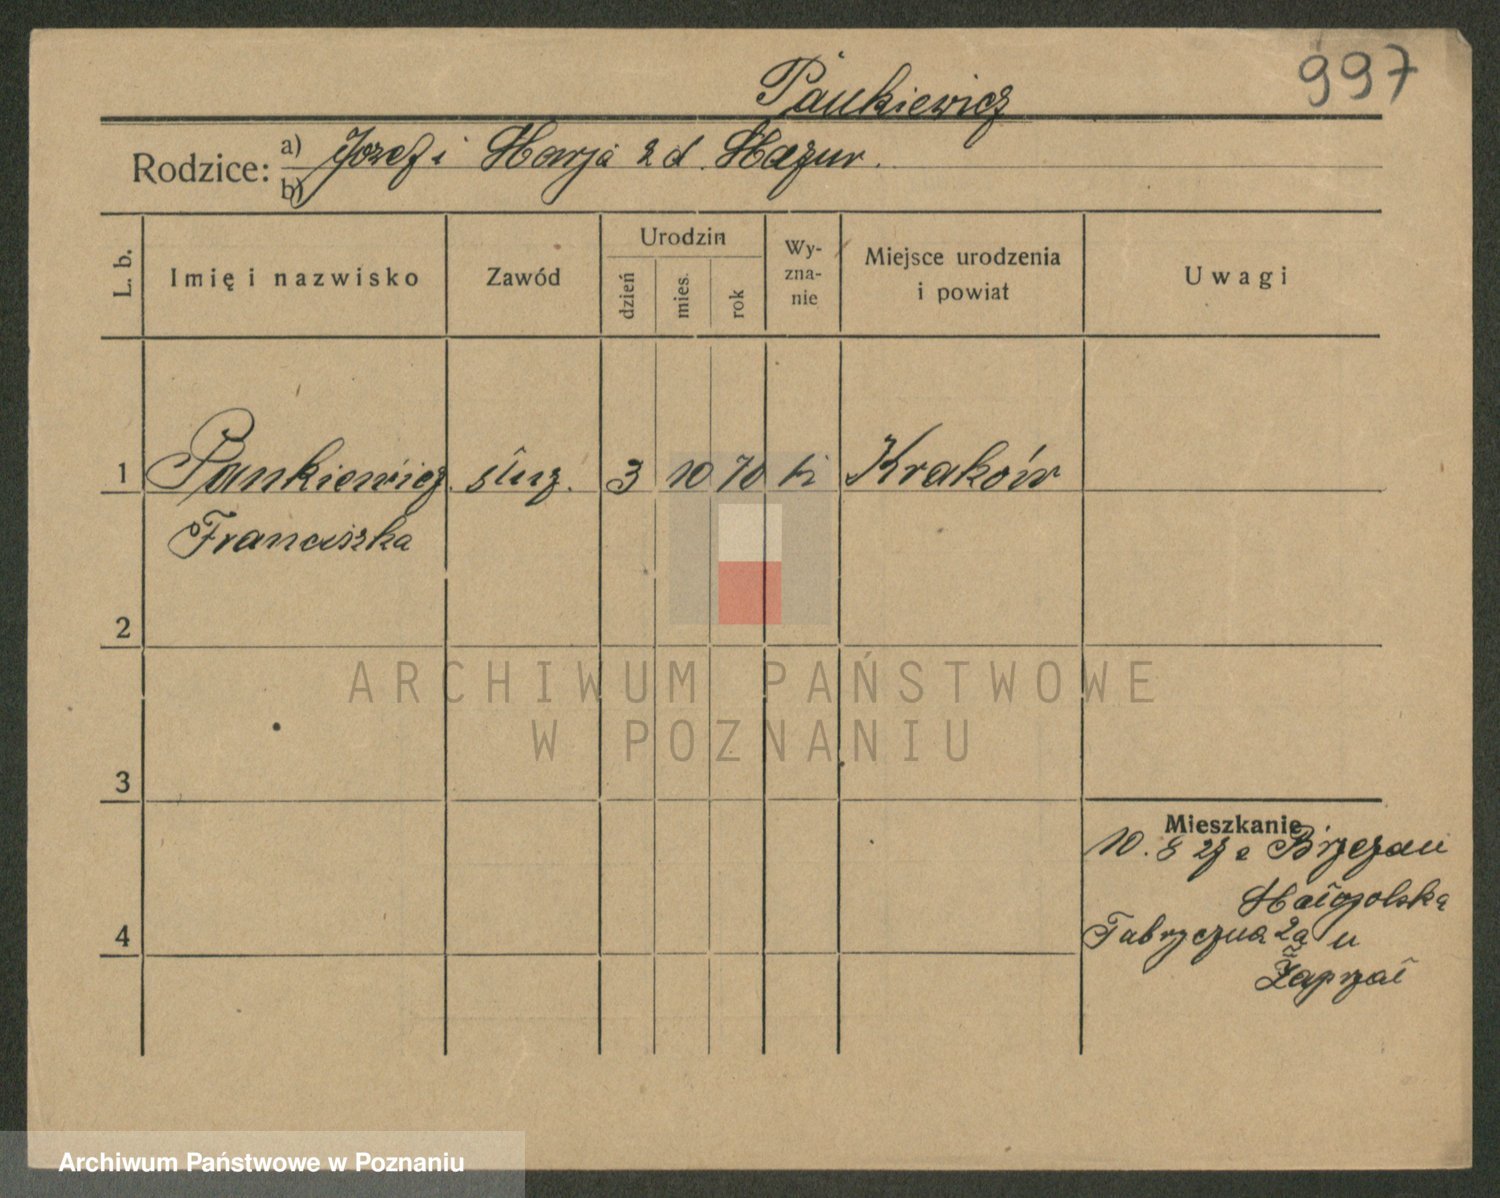 997
Pankiewicz
Rodzice: a) Józef i Marja z d. Mazur.
b)
L. b. Imię i nazwisko Zawód Urodzin dzień mies. rok Wyznanie Miejsce urodzenia i powiat Uwagi
1 Pankiewicz służ. 3 10 70 Kraków
Franciszka
2
3
4
Mieszkanie
10. 8 27 z Brzezan
Małopolska
Fabryczna 2a u
ARCHIWUM PAŃSTWOWE
W POZNANIU
Archiwum Państwowe w Poznaniu